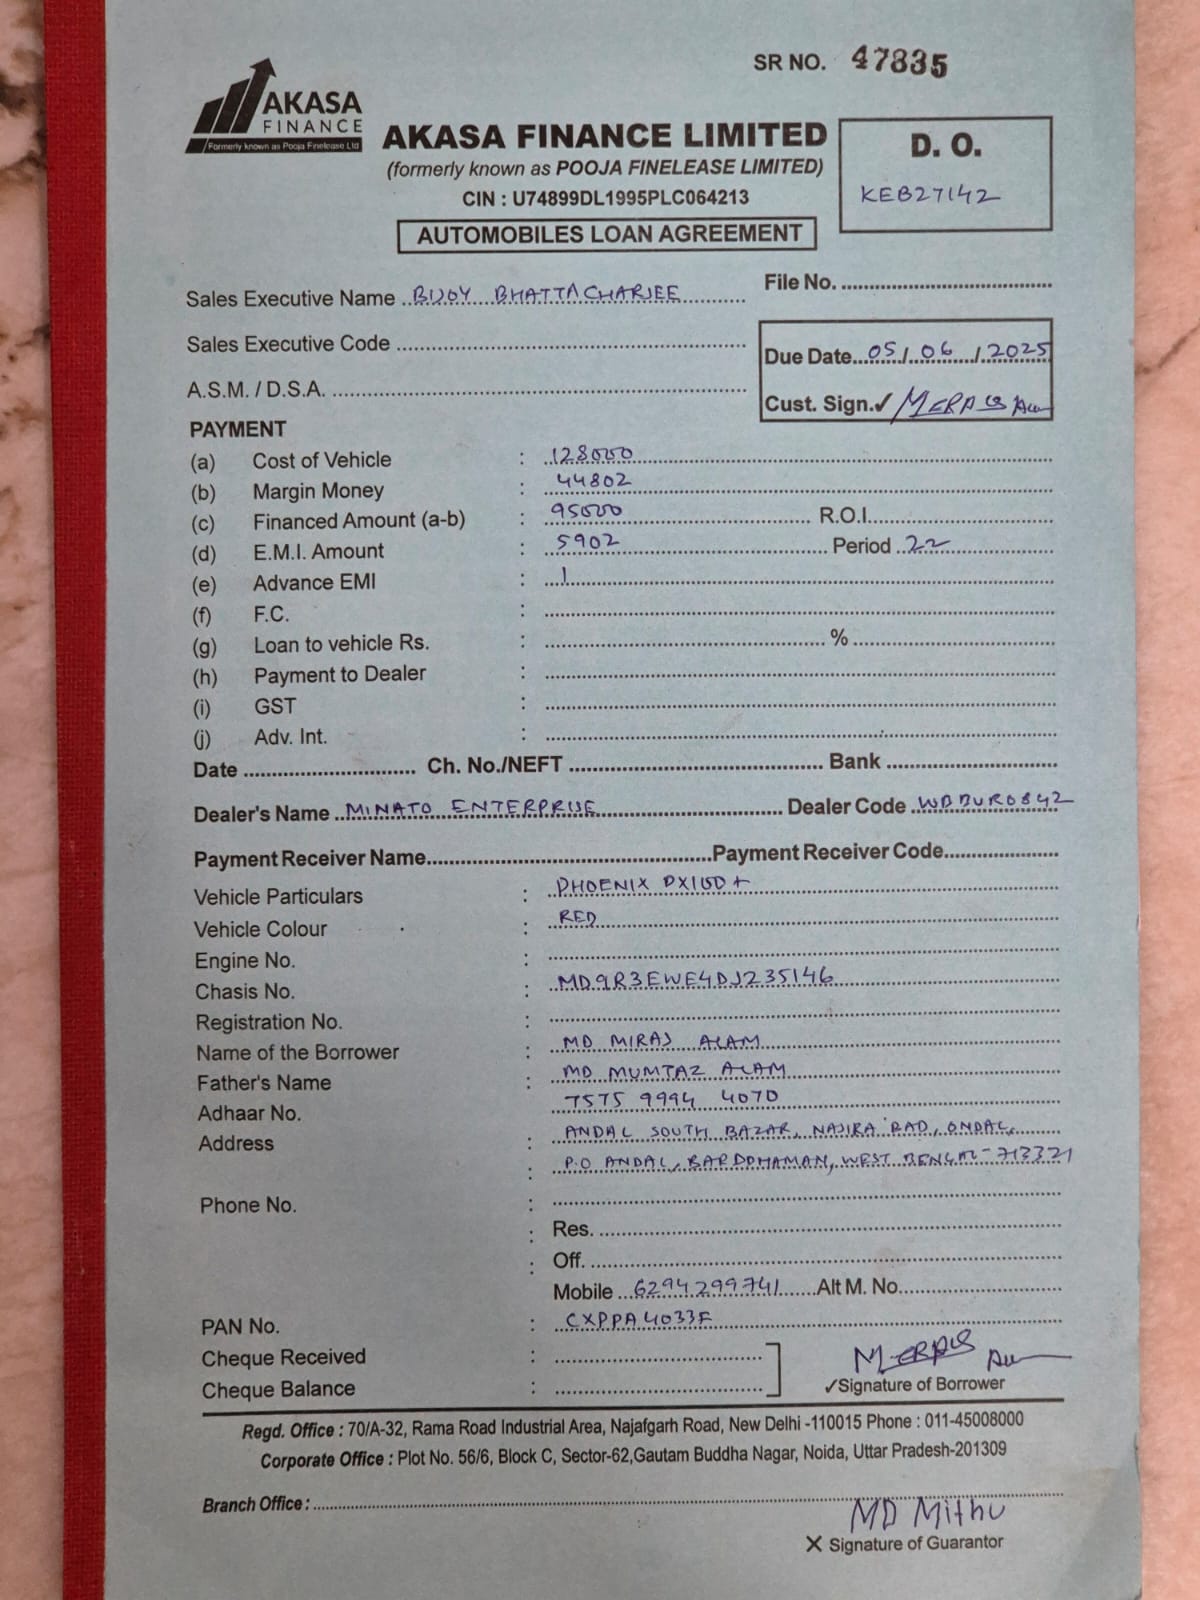 SR NO. 47835
AKASA
FINANCE
Formerly known as Pooja Finelease Ltd
AKASA FINANCE LIMITED
(formerly known as POOJA FINELEASE LIMITED)
CIN : U74899DL1995PLC064213
AUTOMOBILES LOAN AGREEMENT
D. O.
KEB27142
Sales Executive Name BIJOY BHATTACHARJEE
File No.
Sales Executive Code
A.S.M. / D.S.A.
Due Date 05/06/2025
Cust. Sign.✓
PAYMENT
(a) Cost of Vehicle : 128000
(b) Margin Money : 44802
(c) Financed Amount (a-b) : 95000 R.O.I.
(d) E.M.I. Amount : 5902 Period 22
(e) Advance EMI : 1
(f) F.C. :
(g) Loan to vehicle Rs. : %
(h) Payment to Dealer :
(i) GST :
(j) Adv. Int. :
Date Ch. No./NEFT Bank
Dealer's Name MINATO ENTERPRISE Dealer Code WBBUR0842
Payment Receiver Name Payment Receiver Code
Vehicle Particulars : PHOENIX DX100+
Vehicle Colour : RED
Engine No. :
Chasis No. : MD9R3EWE4DJ235146
Registration No. :
Name of the Borrower : MD MIRAJ ALAM
Father's Name : MD MUMTAZ ALAM
Adhaar No. 7575 9994 4070
Address : ANDAL SOUTH BAZAR, NAJIRA BAD, ONDAL,
: P.O ANDAL, BARDDHAMAN, WEST BENGAL-713321
Phone No. :
: Res.
: Off.
Mobile 6294299741 Alt M. No.
PAN No. : CXPPA4033F
Cheque Received :
Cheque Balance :
✓Signature of Borrower
Regd. Office : 70/A-32, Rama Road Industrial Area, Najafgarh Road, New Delhi -110015 Phone : 011-45008000
Corporate Office : Plot No. 56/6, Block C, Sector-62,Gautam Buddha Nagar, Noida, Uttar Pradesh-201309
Branch Office :
MD Mithu
X Signature of Guarantor